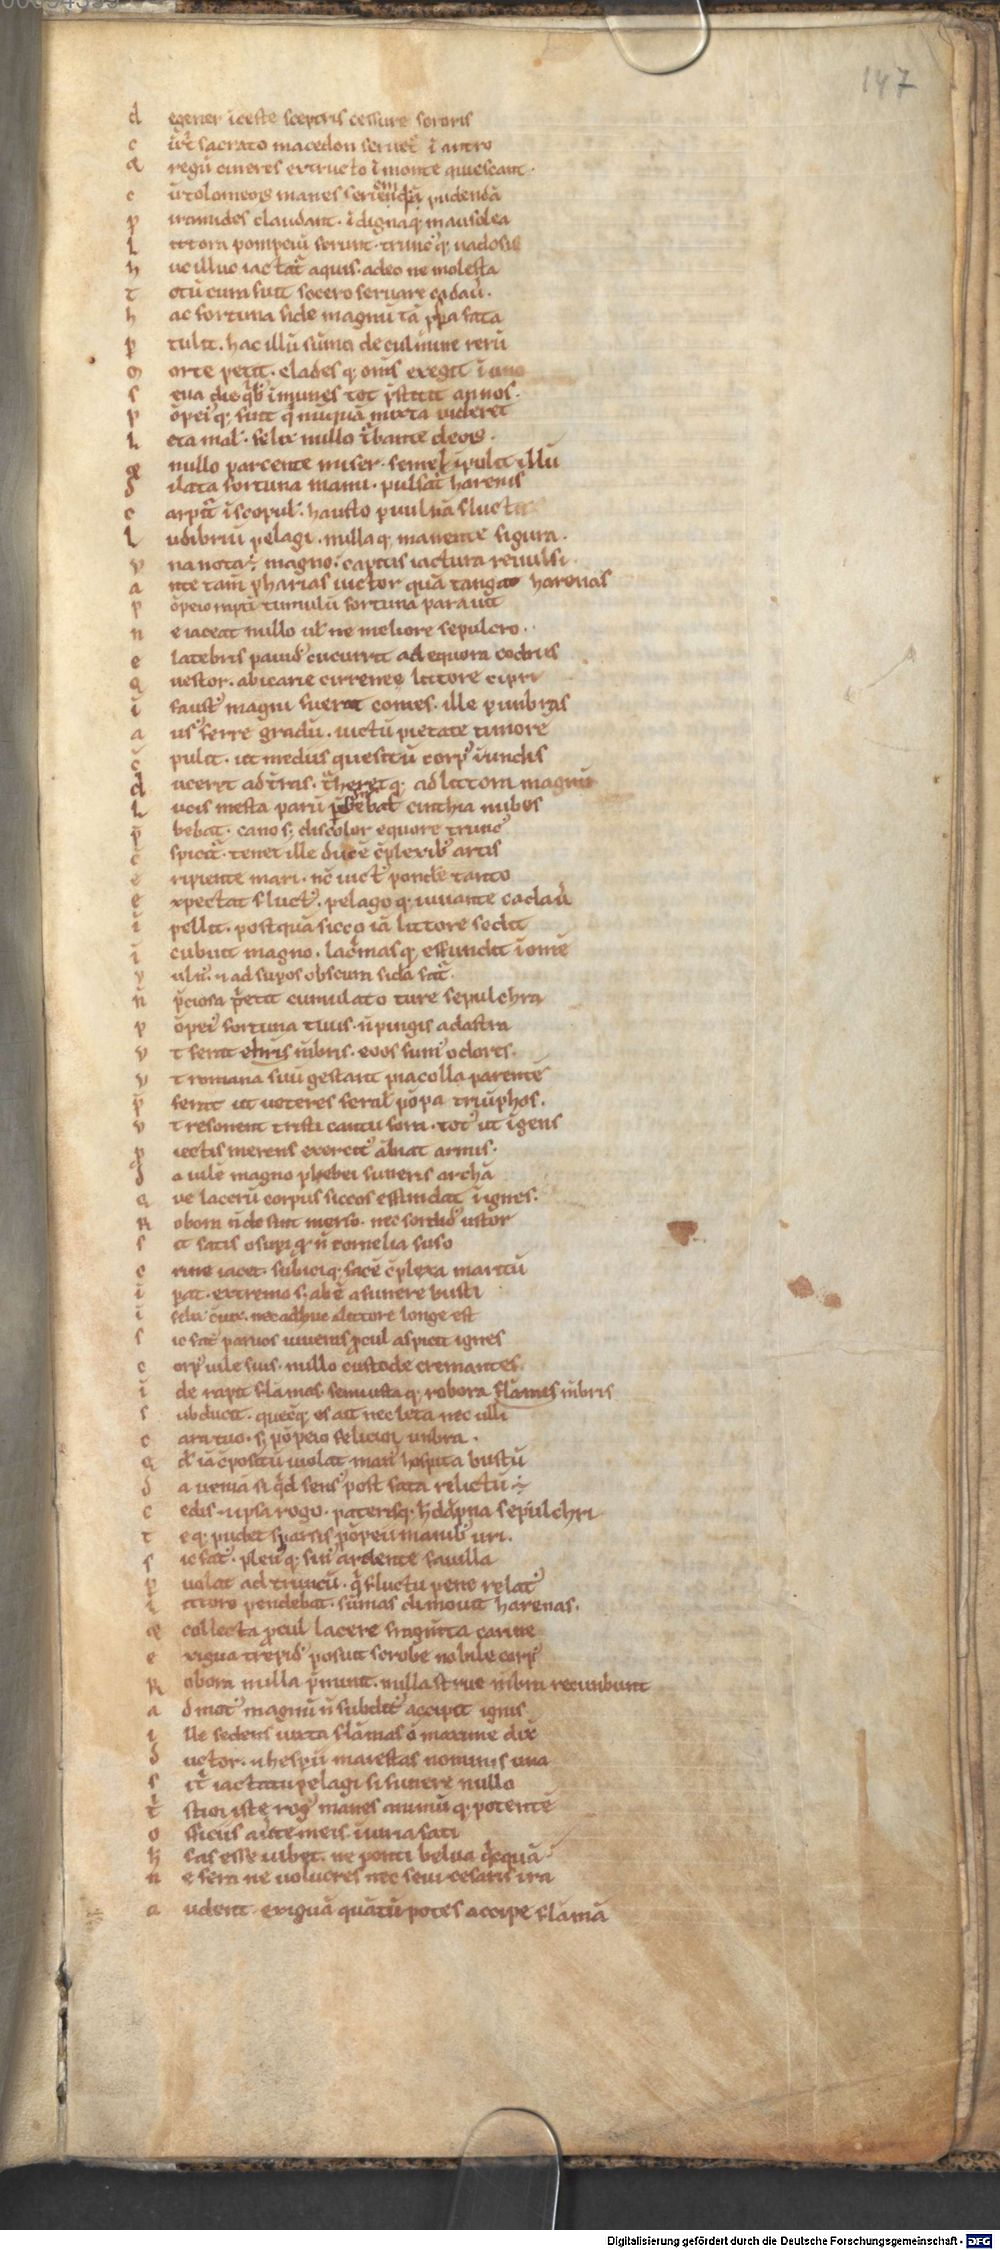 147
d egener iceste sceptris cessure sororis
c ū tˀ sacrato macedon seruetˀ ī antro
& regū cineres extructo ī monte quiescant.
c ū tolomeoꝝ manes seriemqꝫ pudendā
p iramides claudant. īdignaqꝫ mausolea
l ittora pompeiū feriunt. truncˀqꝫ uadosis
h uc illuc iactatˀ aquis. adeo ne molesta
t otū cura fuit socero seruare cadauˀ.
h ac fortuna fide magnū tā ꝓspa fata
p tulit. hac illū sūmo de culmine rerū
m orte petit. cladesqꝫ om̄s exegit ī uno
s eua die qˀbˀ īmunes tot p̄stitit annos.
p ōpeiˀqꝫ fuit qˀ nūquā mixta uideret
l eta malˀ. felix nullo tˀbante deoꝝ.
& nullo parcente miser. semel īpulit illū
d ilata fortuna manu. pulsatˀ harenis
c arpitˀ ī scopulˀ. hausto p uulnā fluctu
l udibriū pelagi. nullaqꝫ manente figura.
v na nota ē magno. capitis iactura reuulsi.
a nte tam̄ pharias uictor quā tangat harenas
p ōpeio rapti tumulū fortuna parauit
n e iaceat nullo uˡ ne meliore sepulcro.
e latebris pauidˀ cucurrit ad equora codrus
q uestor. ab icarie cirreneo littore cipri
i faustˀ magni fuerat comes. ille p umbras
a usˀ ferre gradū. uictū pietate timorē
c̄ pulit. ut mediis quesitū corpˀ ī undis
d uceret ad tˀras. tˀheretqꝫ ad littora magnū
l ucis mesta parū p̄bebat cinthia nubes
p̄ bebat. cano sꝫ discolor equore truncˀ
c̄ spicitˀ. tenet ille ducē c̄plexibˀ artis
e ripiente mari. nc̄ uictˀ pondere tanto
e xpectat fluctˀ. pelagoqꝫ iuuante cadauˀ
i pellit. postquā sicco iā littore sedit
i cubuit magno. lacˀmasqꝫ effundit ī omē
v ulnˀ. ⁊ ad supos obscura sidˀa fatˀ.
n̄ p̄ciosa petit cumulato ture sepulchra
p ōpeiˀ fortuna tuus. n̄ pinguis ad astra
v t ferat e mēbris. eoos fumˀ odores.
v t romana suū gestant pia colla parentē
p̄ ferat ut ueteres feralˀ pōpa triūphos.
v t resonent tristi cantu fora. totˀ ut ignes
p iectis merens exercitˀ ābiat armis.
d a uilē magno plebei funeris archā
q ue lacerū corpus siccos effundat ī ignes.
R obora n̄ desint misero. nec sordidˀ ustor
s it satis o supi qꝫ n̄ cornelia fuso
c rine iacet. subiciqꝫ facē c̄plexa maritū
i pat. extremo sꝫ abē a funere busti
i felix cˀiux. nec adhuc a littore longe est
s ic fatˀ paruos iuuenis ꝓcul aspicit ignes
c orpˀ uile suis. nullo custode cremantes.
i de rapit flāmas. semiustaqꝫ robora mēbris
s ubducit. quecūqꝫ es ait neclecta nec ulli
c ara tuo. sꝫ pōpeio felicior umbra.
q dˀ iā c̄positū uiolat manˀ hospita bustū
d a ueniā si qˀd sensˀ post fata relictū ē
c edis ⁊ ipsa rogo. paterisqꝫ h̄ dāpna sepulchri
t eqꝫ pudet sparsis pōpeii manibˀ uri.
s ic fatˀ. plenˀqꝫ sinˀ ardente fauilla
p uolat ad truncū. qˀ fluctu pene relatˀ
l ittore pendebat. sūmas dimouit harenas.
& collecta ꝓcul lacere fragmīta carine
e xigua trepidˀ posuit scrobe nobile corpˀ
R obora nulla p̄munt. nulla strue mēbra recumbunt
a dmotˀ magnū n̄ subditˀ accipit ignis
i lle sedens iuxta flāmas o maxime dix̄
d uctor. ⁊ hespiī maiestas nominis una
s itˀ iactatu pelagi si funere nullo
tˀ stior iste rogˀ manes animūqꝫ potentē
o fficiis auˀte meis. iniuria fati
h̄ fas esse iubet. ne ponti belua qˀcquā
n e fera ne uolucres nec seui cesaris ira
a udent. exiguā quātū potes accipe flāmā
Digitalisierung gefördert durch die Deutsche Forschungsgemeinschaft - DFG